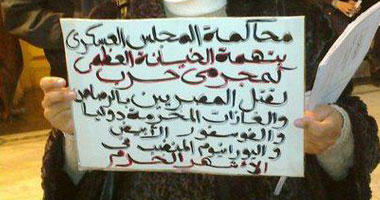 محاكمة المجلس العسكرى
بتهمة الخيانة العظمى
كمجرمى حرب
لقتل المصريين بالرصاص
والغازات المحرمة دوليا
والفوسفور الأبيض
واليورانيوم المنضب فى
الأشهر الحرم